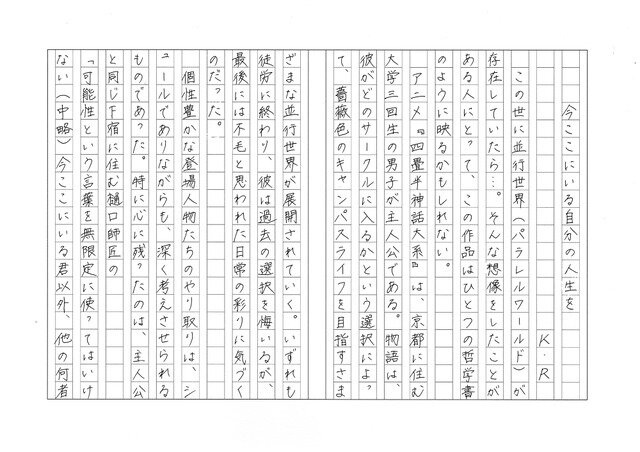 今ここにいる自分の人生を
K・R
この世に並行世界(パラレルワールド)が
存在していたら…。そんな想像をしたことが
ある人にとって、この作品はひとつの哲学書
のように映るかもしれない。
アニメ『四畳半神話大系』は、京都に住む
大学三回生の男子が主人公である。物語は、
彼がどのサークルに入るかという選択によっ
て、薔薇色のキャンパスライフを目指すさま
ざまな並行世界が展開されていく。いずれも
徒労に終わり、彼は過去の選択を悔いるが、
最後には不毛と思われた日常の彩りに気づく
のだった。
個性豊かな登場人物たちのやり取りは、シ
ュールでありながらも、深く考えさせられる
ものであった。特に心に残ったのは、主人公
と同じ下宿に住む樋口師匠の
「可能性という言葉を無限定に使ってはいけ
ない(中略)今ここにいる君以外、他の何者